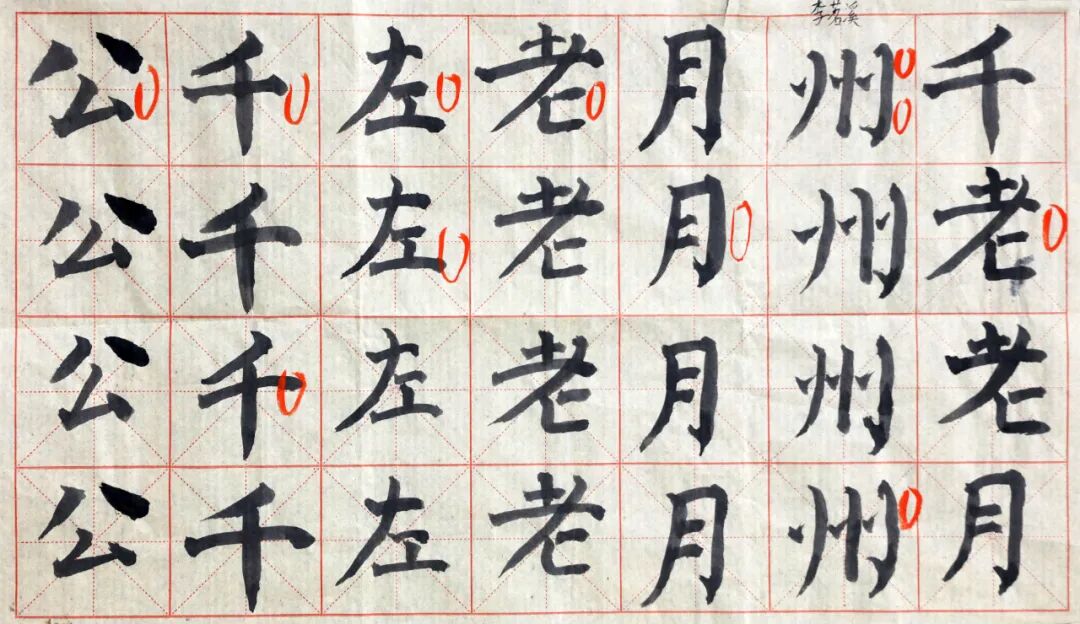 李茗溪
公千左老月州千
公千左老月州老
公千左老月州老
公千左老月州月